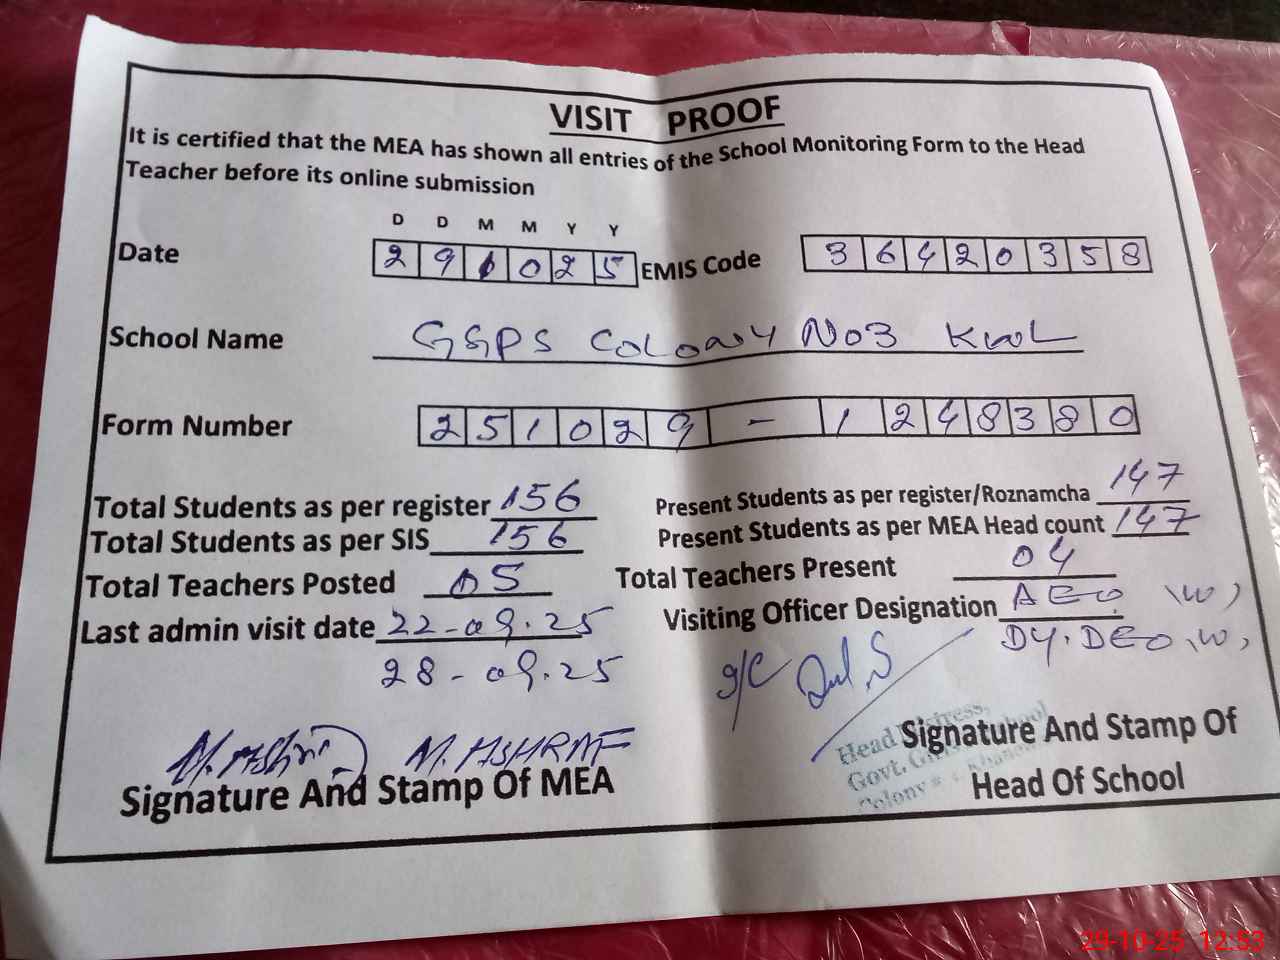 VISIT PROOF
It is certified that the MEA has shown all entries of the School Monitoring Form to the Head
Teacher before its online submission
D D M M Y Y
Date 291025 EMIS Code 36420358
School Name GGPS Colony No3 KWL
Form Number 251029-1248380
Total Students as per register 156 Present Students as per register/Roznamcha 147
Total Students as per SIS 156 Present Students as per MEA Head count 147
Total Teachers Posted 05 Total Teachers Present 04
Last admin visit date 22-09.25 Visiting Officer Designation AEO (W)
28-09.25 DY.DEO (W)
I/C
M. ASHRAF
Signature And Stamp Of MEA Signature And Stamp Of
Head Of School
Head
Govt.
Colony
29-10-25 12:53